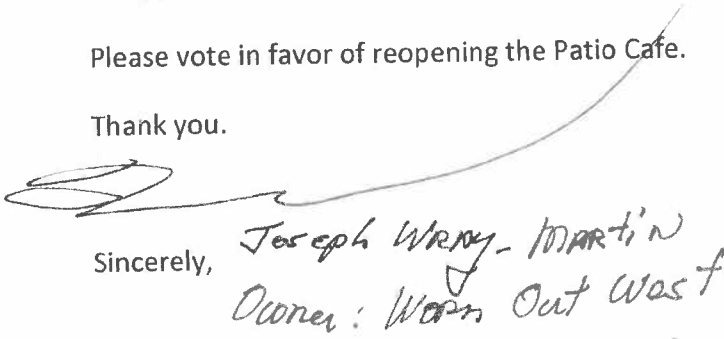 Please vote in favor of reopening the Patio Cafe.
Thank you.
Sincerely, Joseph WRAY-MARTIN
Owner: Worn Out West